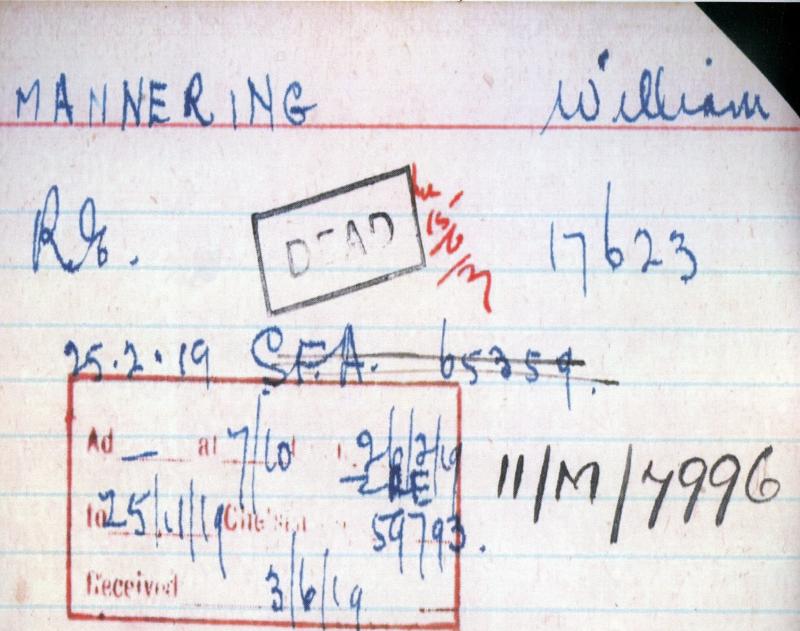 MANNERING William
RE. DEAD 17623
25.2.19 S.F.A. 65359.
Ad — at 7/10 26/2/19
RE 11/M/7996
to 25/11/19 Che'sea 59793.
Received 3/6/19